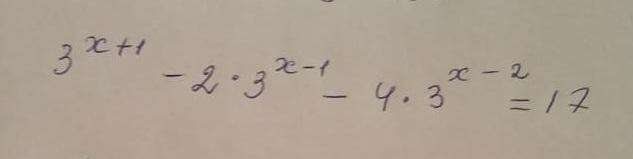 3^{x+1} - 2 · 3^{x-1} - 4 · 3^{x-2} = 17